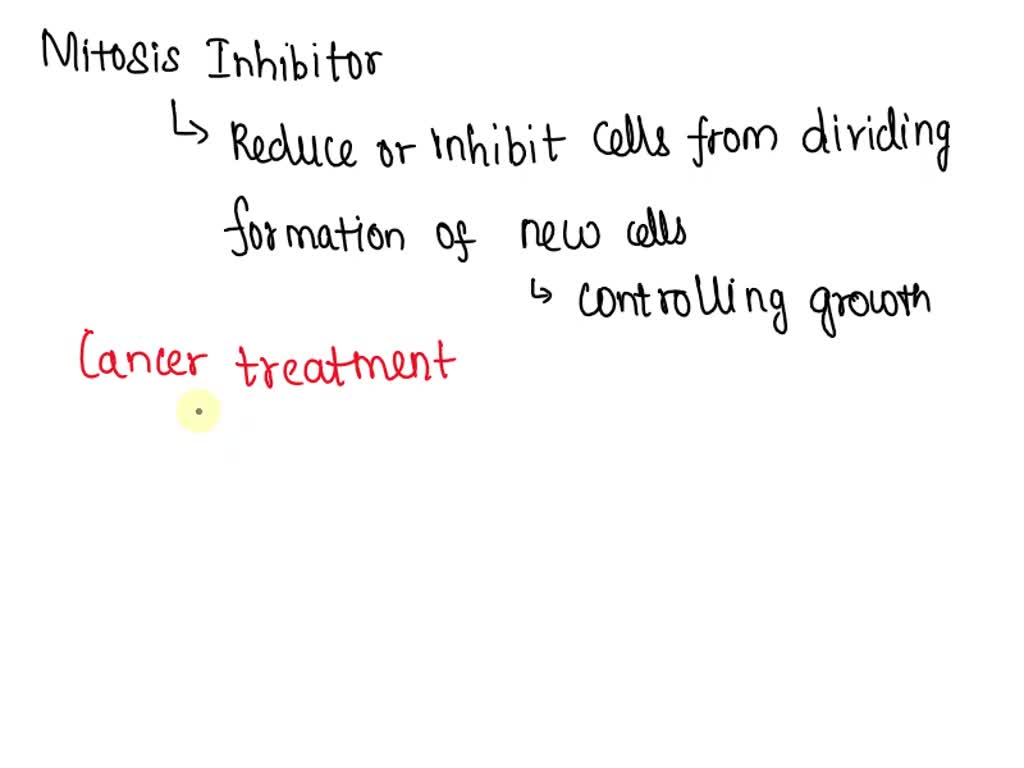 Mitosis Inhibitor
↳ Reduce or inhibit cells from dividing
formation of new cells
↳ controlling growth
Cancer treatment